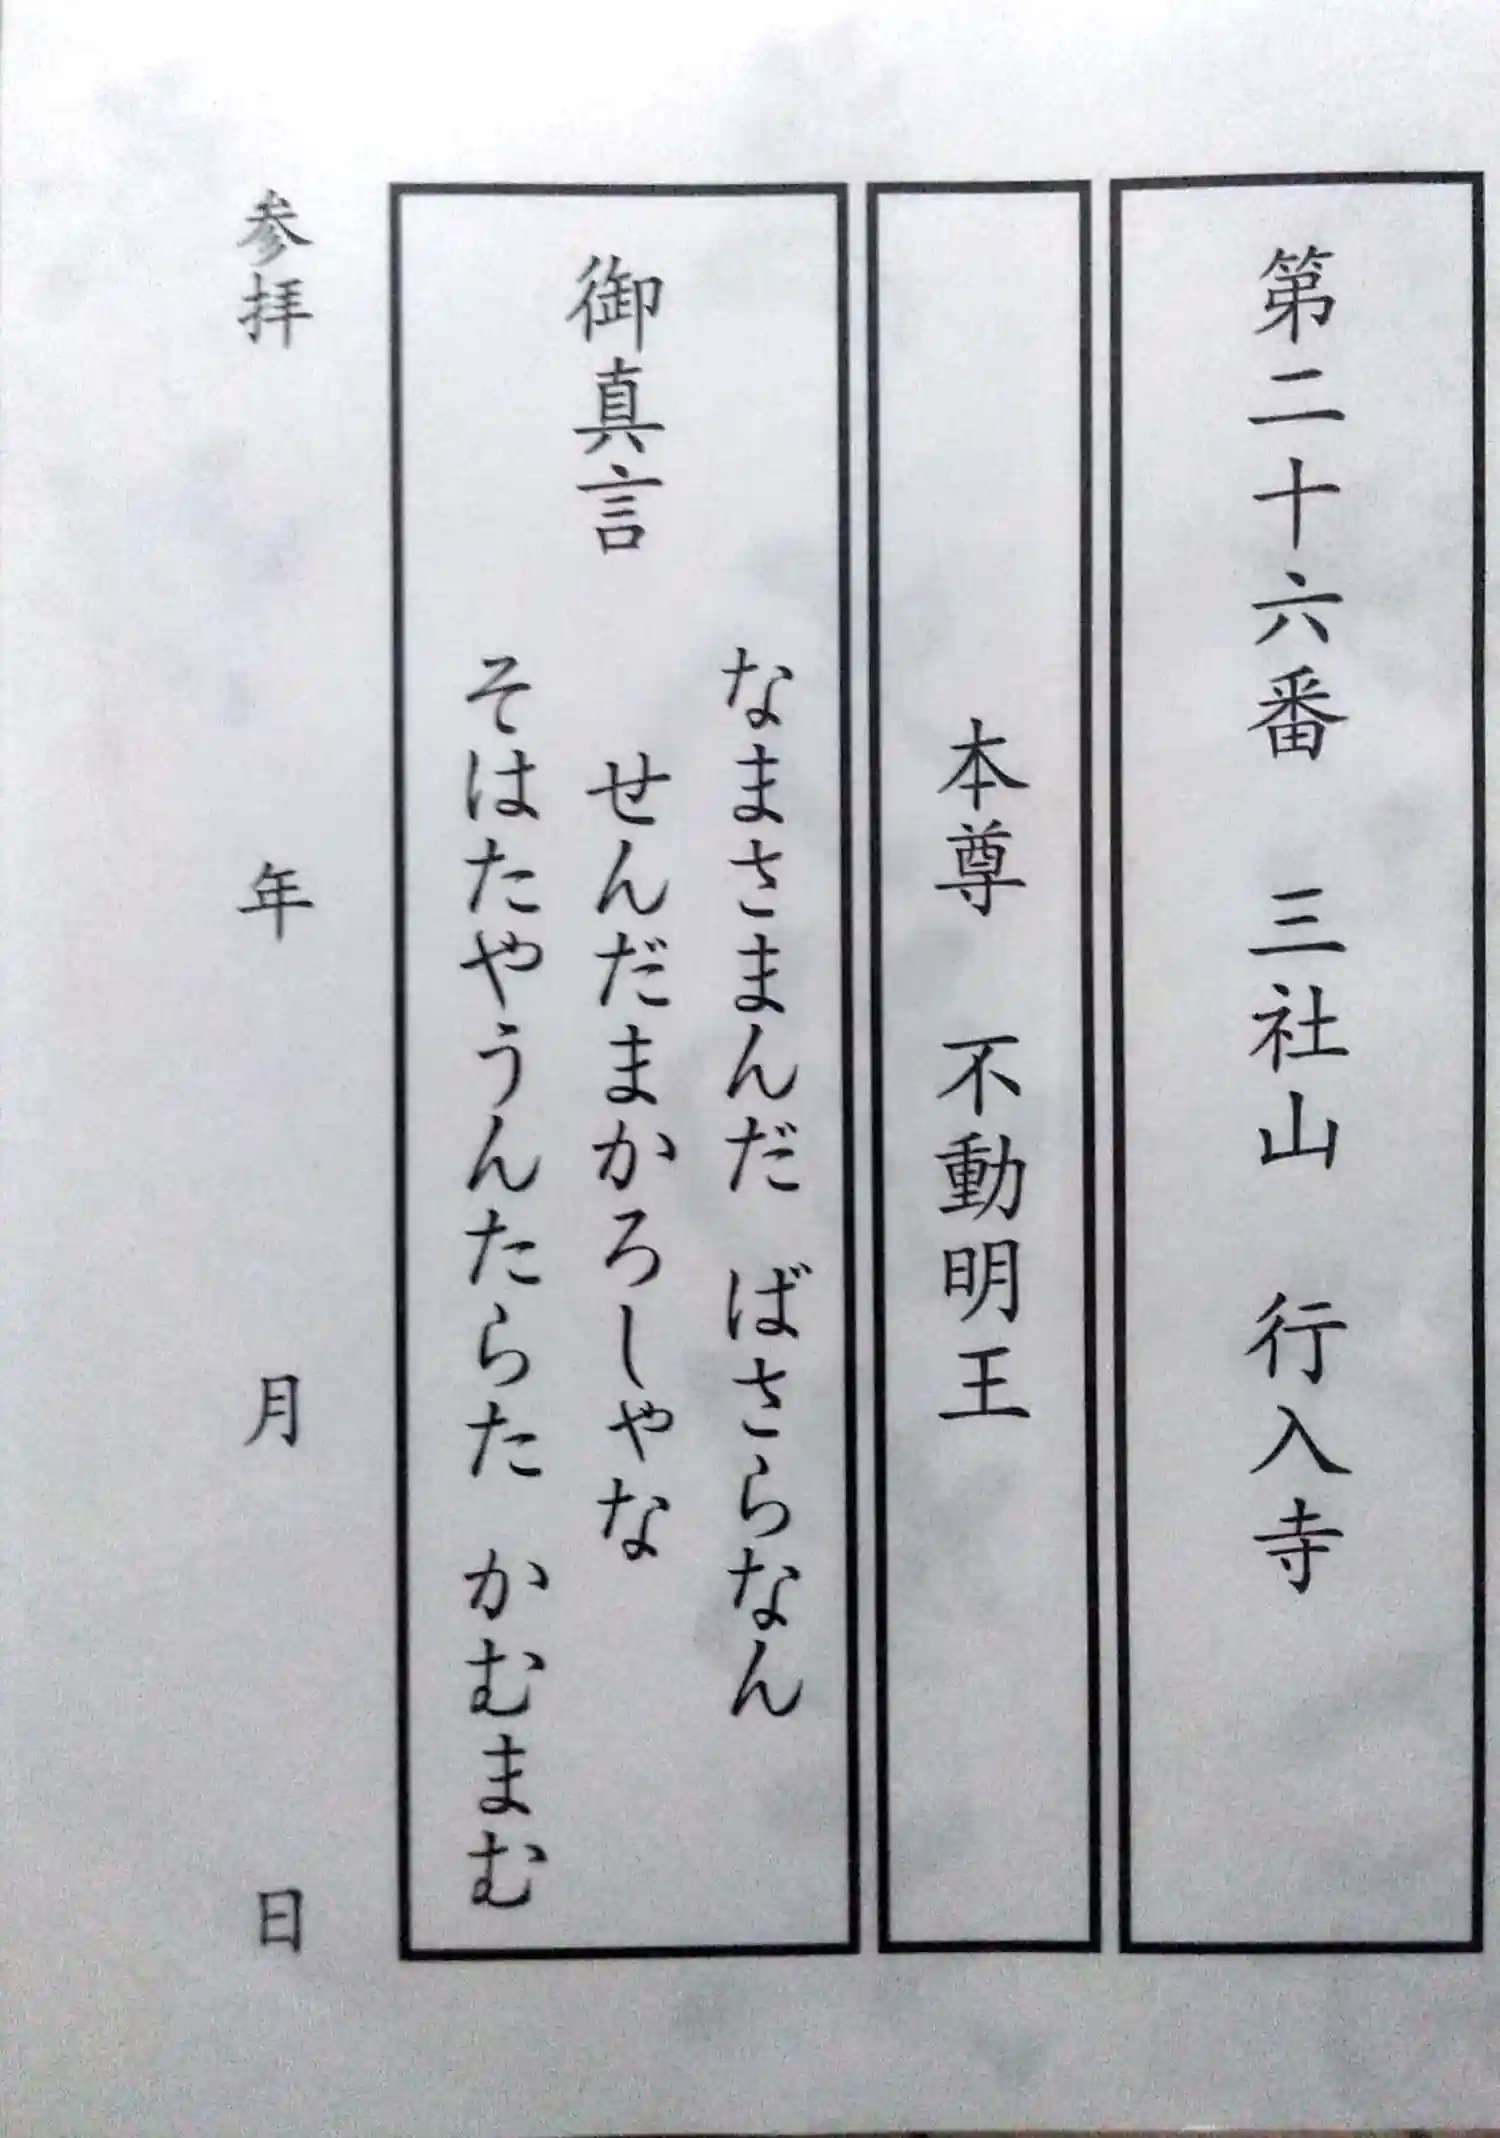 第二十六番　三社山　行入寺
本尊　不動明王
御真言
なまさまんだ　ばさらなん
せんだまかろしゃな
そはたやうんたらた　かむまむ
参拝　年　月　日